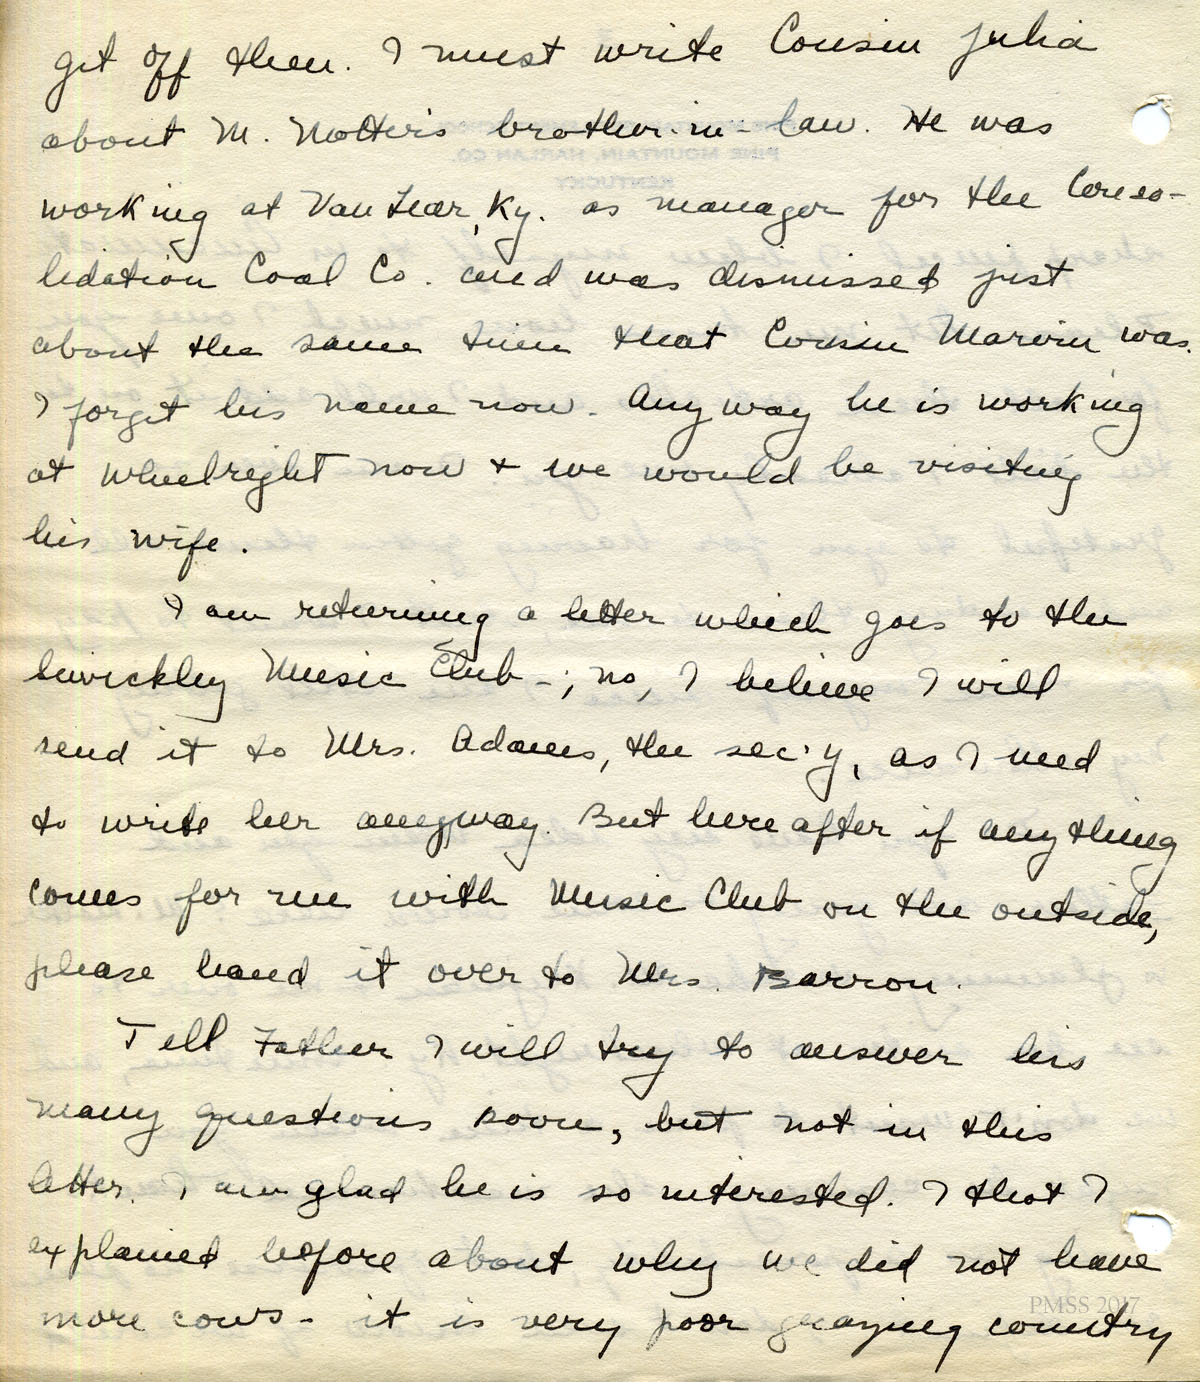 get off then. I must write Cousin Julia
about M. Notter's brother-in-law. He was
working at Van Lear, Ky. as manager for the Conso-
lidation Coal Co. and was dismissed just
about the same time that Cousin Marvin was.
I forget his name now. Any way he is working
at Wheelright now + we would be visiting
his wife.
I am returning a letter which goes to the
Sewickley Music Club -; no, I believe I will
send it to Mrs. Adams, the sec'y, as I need
to write her anyway. But here after if anything
comes for me with Music Club on the outside,
please hand it over to Mrs. Barron.
Tell Father I will try to answer his
many questions soon, but not in this
letter. I am glad he is so interested. I thot I
explained before about why we did not have
more cows - it is very poor grazing country
PMSS 2017
PINE MOUNTAIN, HARLAN CO.
KENTUCKY